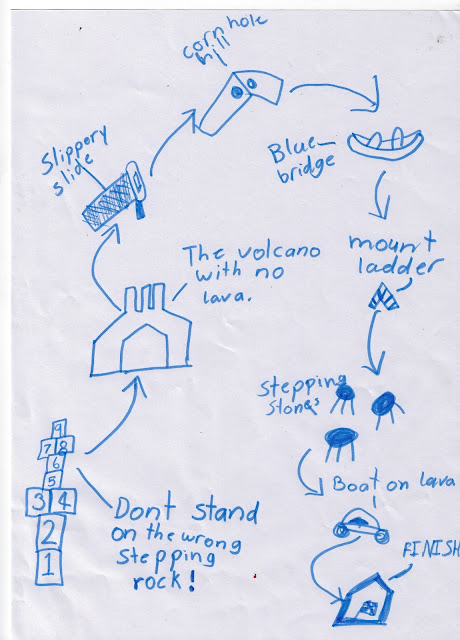 corn hole
hill
Slippery
slide
Blue-
bridge
The volcano
with no
lava.
mount
ladder
Stepping
Stones
9
7 8
6
5
3 4
2
1
Dont stand
on the wrong
stepping
rock!
Boat on lava
FINISH